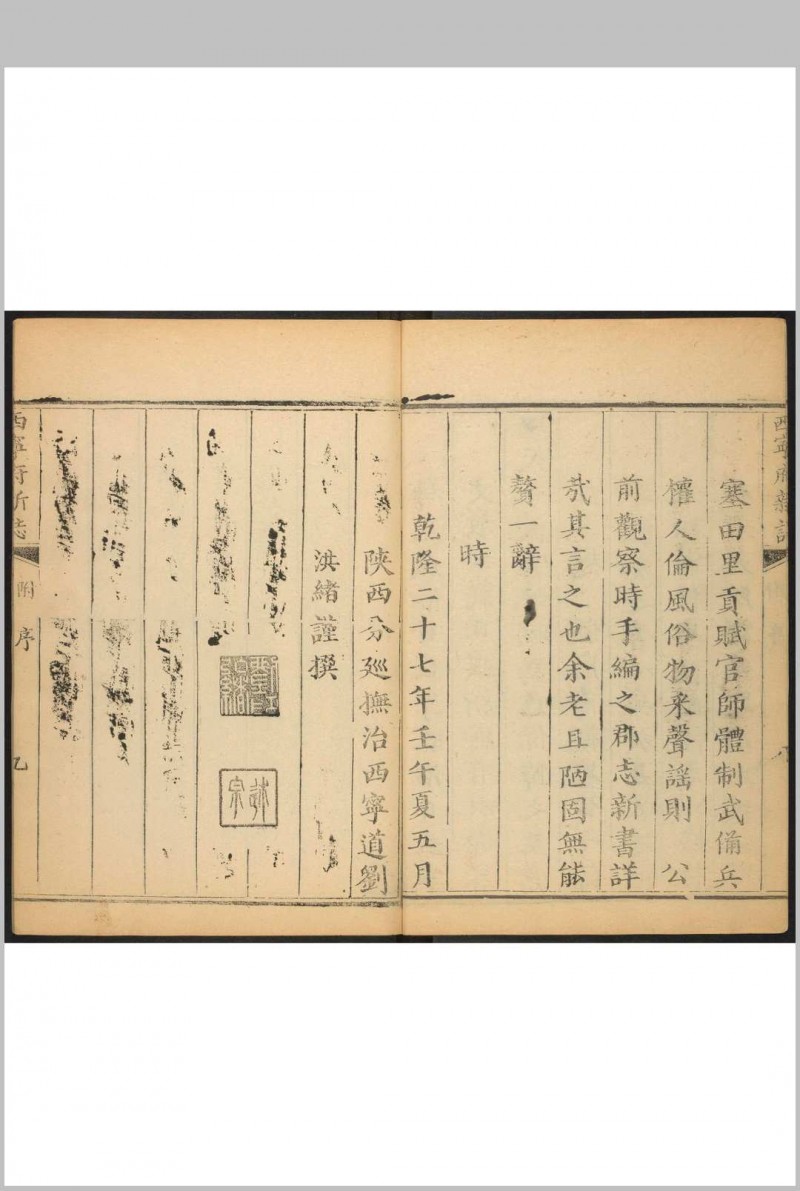 西寧府新志
塞田里貢賦官師體制武備兵
權人倫風俗物采聲謡則 公
前觀察時手編之郡志新書詳
㢤其言之也余老且陋固無能
贅一辭
時
乾隆二十七年壬午夏五月
陝西分廵撫治西寧道劉
洪緒謹撰
西寧府新志
附
序